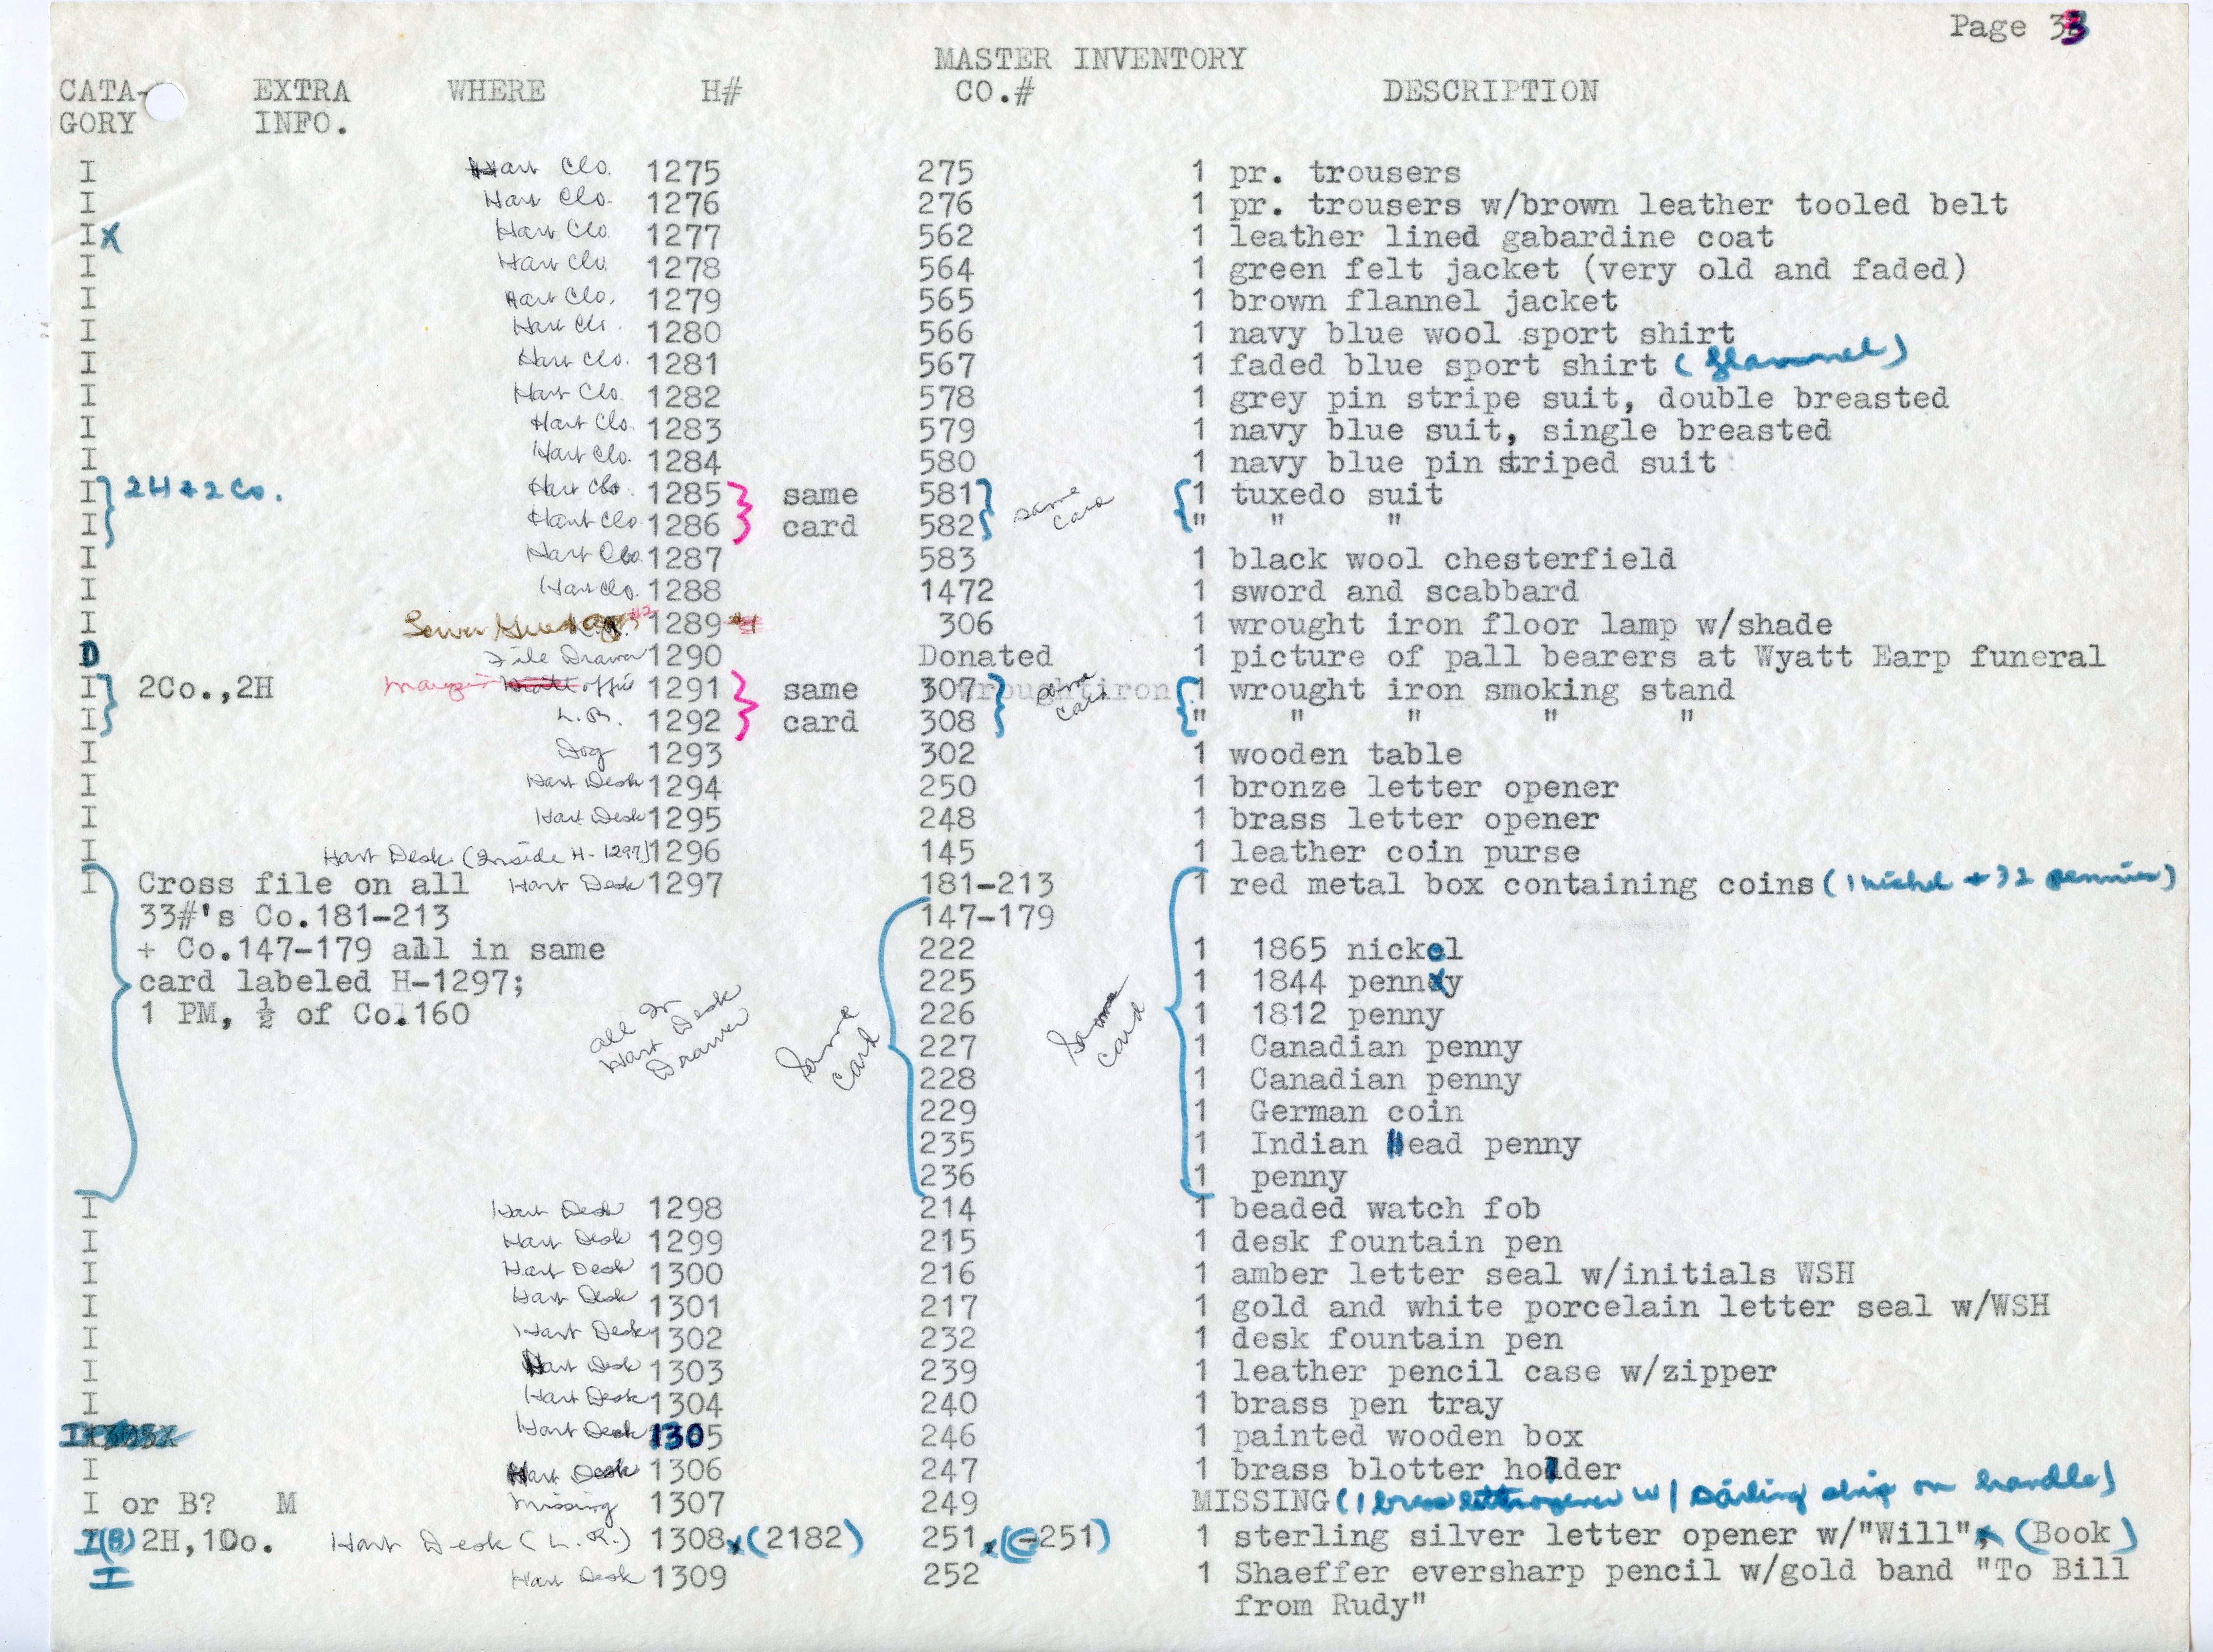 Page 33
MASTER INVENTORY
CATA- EXTRA WHERE H# CO.# DESCRIPTION
GORY INFO.
I Hart Clo. 1275 275 1 pr. trousers
I Hart Clo. 1276 276 1 pr. trousers w/brown leather tooled belt
I X Hart Clo 1277 562 1 leather lined gabardine coat
I Hart Clo 1278 564 1 green felt jacket (very old and faded)
I Hart Clo. 1279 565 1 brown flannel jacket
I Hart Clo. 1280 566 1 navy blue wool sport shirt
I Hart Clo. 1281 567 1 faded blue sport shirt (flannel)
I Hart Clo. 1282 578 1 grey pin stripe suit, double breasted
I Hart Clo. 1283 579 1 navy blue suit, single breasted
I Hart Clo. 1284 580 1 navy blue pin striped suit
I 2H + 2 Co. Hart Clo. 1285 same 581 same 1 tuxedo suit
I Hart Clo 1286 card 582 card " " "
I Hart Clo 1287 583 1 black wool chesterfield
I Hart Clo. 1288 1472 1 sword and scabbard
I 1289 306 1 wrought iron floor lamp w/shade
D File Drawer 1290 Donated 1 picture of pall bearers at Wyatt Earp funeral
I 2Co.,2H office 1291 same 307 same 1 wrought iron smoking stand
I L.R. 1292 card 308 card " " " " "
I Dog 1293 302 1 wooden table
I Hart Desk 1294 250 1 bronze letter opener
I Hart Desk 1295 248 1 brass letter opener
I Hart Desk (Inside H-1297) 1296 145 1 leather coin purse
I Cross file on all Hart Desk 1297 181-213 1 red metal box containing coins (1 nickel + 32 pennies)
33#'s Co.181-213 147-179
+ Co.147-179 all in same 222 1 1865 nickel
card labeled H-1297; 225 1 1844 penny
1 PM, ½ of Co.160 226 1 1812 penny
all in Hart Desk Drawer same card 227 same card 1 Canadian penny
228 1 Canadian penny
229 1 German coin
235 1 Indian Head penny
236 1 penny
I Hart Desk 1298 214 1 beaded watch fob
I Hart Desk 1299 215 1 desk fountain pen
I Hart Desk 1300 216 1 amber letter seal w/initials WSH
I Hart Desk 1301 217 1 gold and white porcelain letter seal w/WSH
I Hart Desk 1302 232 1 desk fountain pen
I Hart Desk 1303 239 1 leather pencil case w/zipper
I Hart Desk 1304 240 1 brass pen tray
I Hart Desk 1305 246 1 painted wooden box
I Hart Desk 1306 247 1 brass blotter holder
I or B? M missing 1307 249 MISSING (1 brass letter opener w/ Sterling strip on handle)
I(B) 2H,1Co. Hart Desk (L.R.) 1308 x (2182) 251 x (C-251) 1 sterling silver letter opener w/"Will" x (Book)
I Hart Desk 1309 252 1 Shaeffer eversharp pencil w/gold band "To Bill
from Rudy"